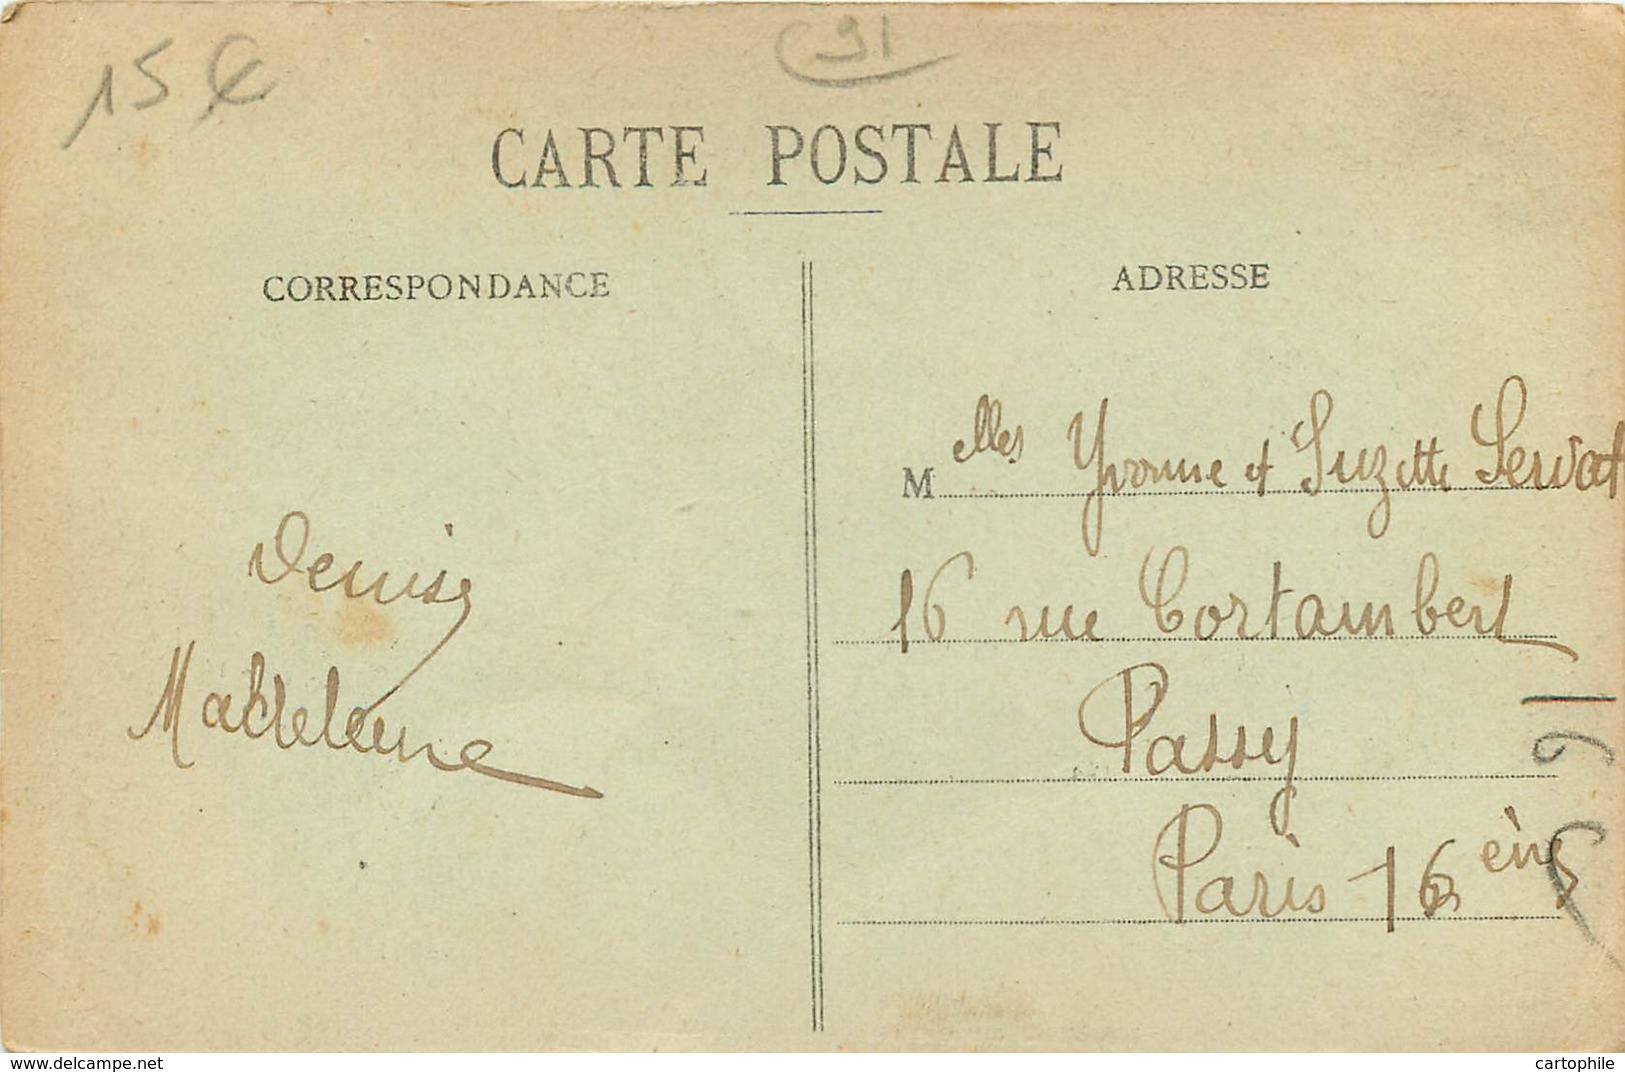 15 €
91
CARTE POSTALE
CORRESPONDANCE
ADRESSE
Denise
Madeleine
Melles Yvonne et Suzette Servat
16 rue Cortambert
Passy
Paris 16ème
www.delcampe.net
cartophile